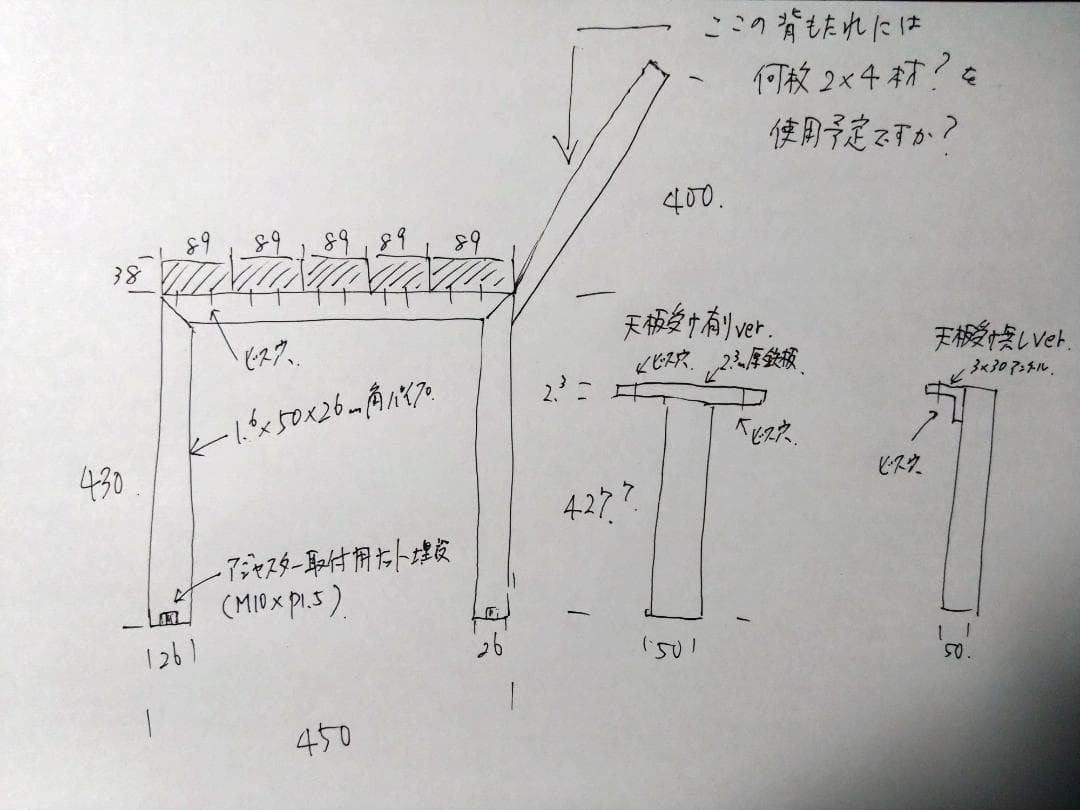 ここの背もたれには
何枚2×4材?を
使用予定ですか?
400.
89 89 89 89 89
38
ビス穴
天板受け有りver.
ビス穴 2.3m厚鉄板
2.3
ビス穴
天板受け無しver.
3×30アングル
ビス穴
1.6×50×26m角パイプ
430.
427.7
アジャスター取付用ナット埋設
(M10×P1.5)
26
26
50
50.
450